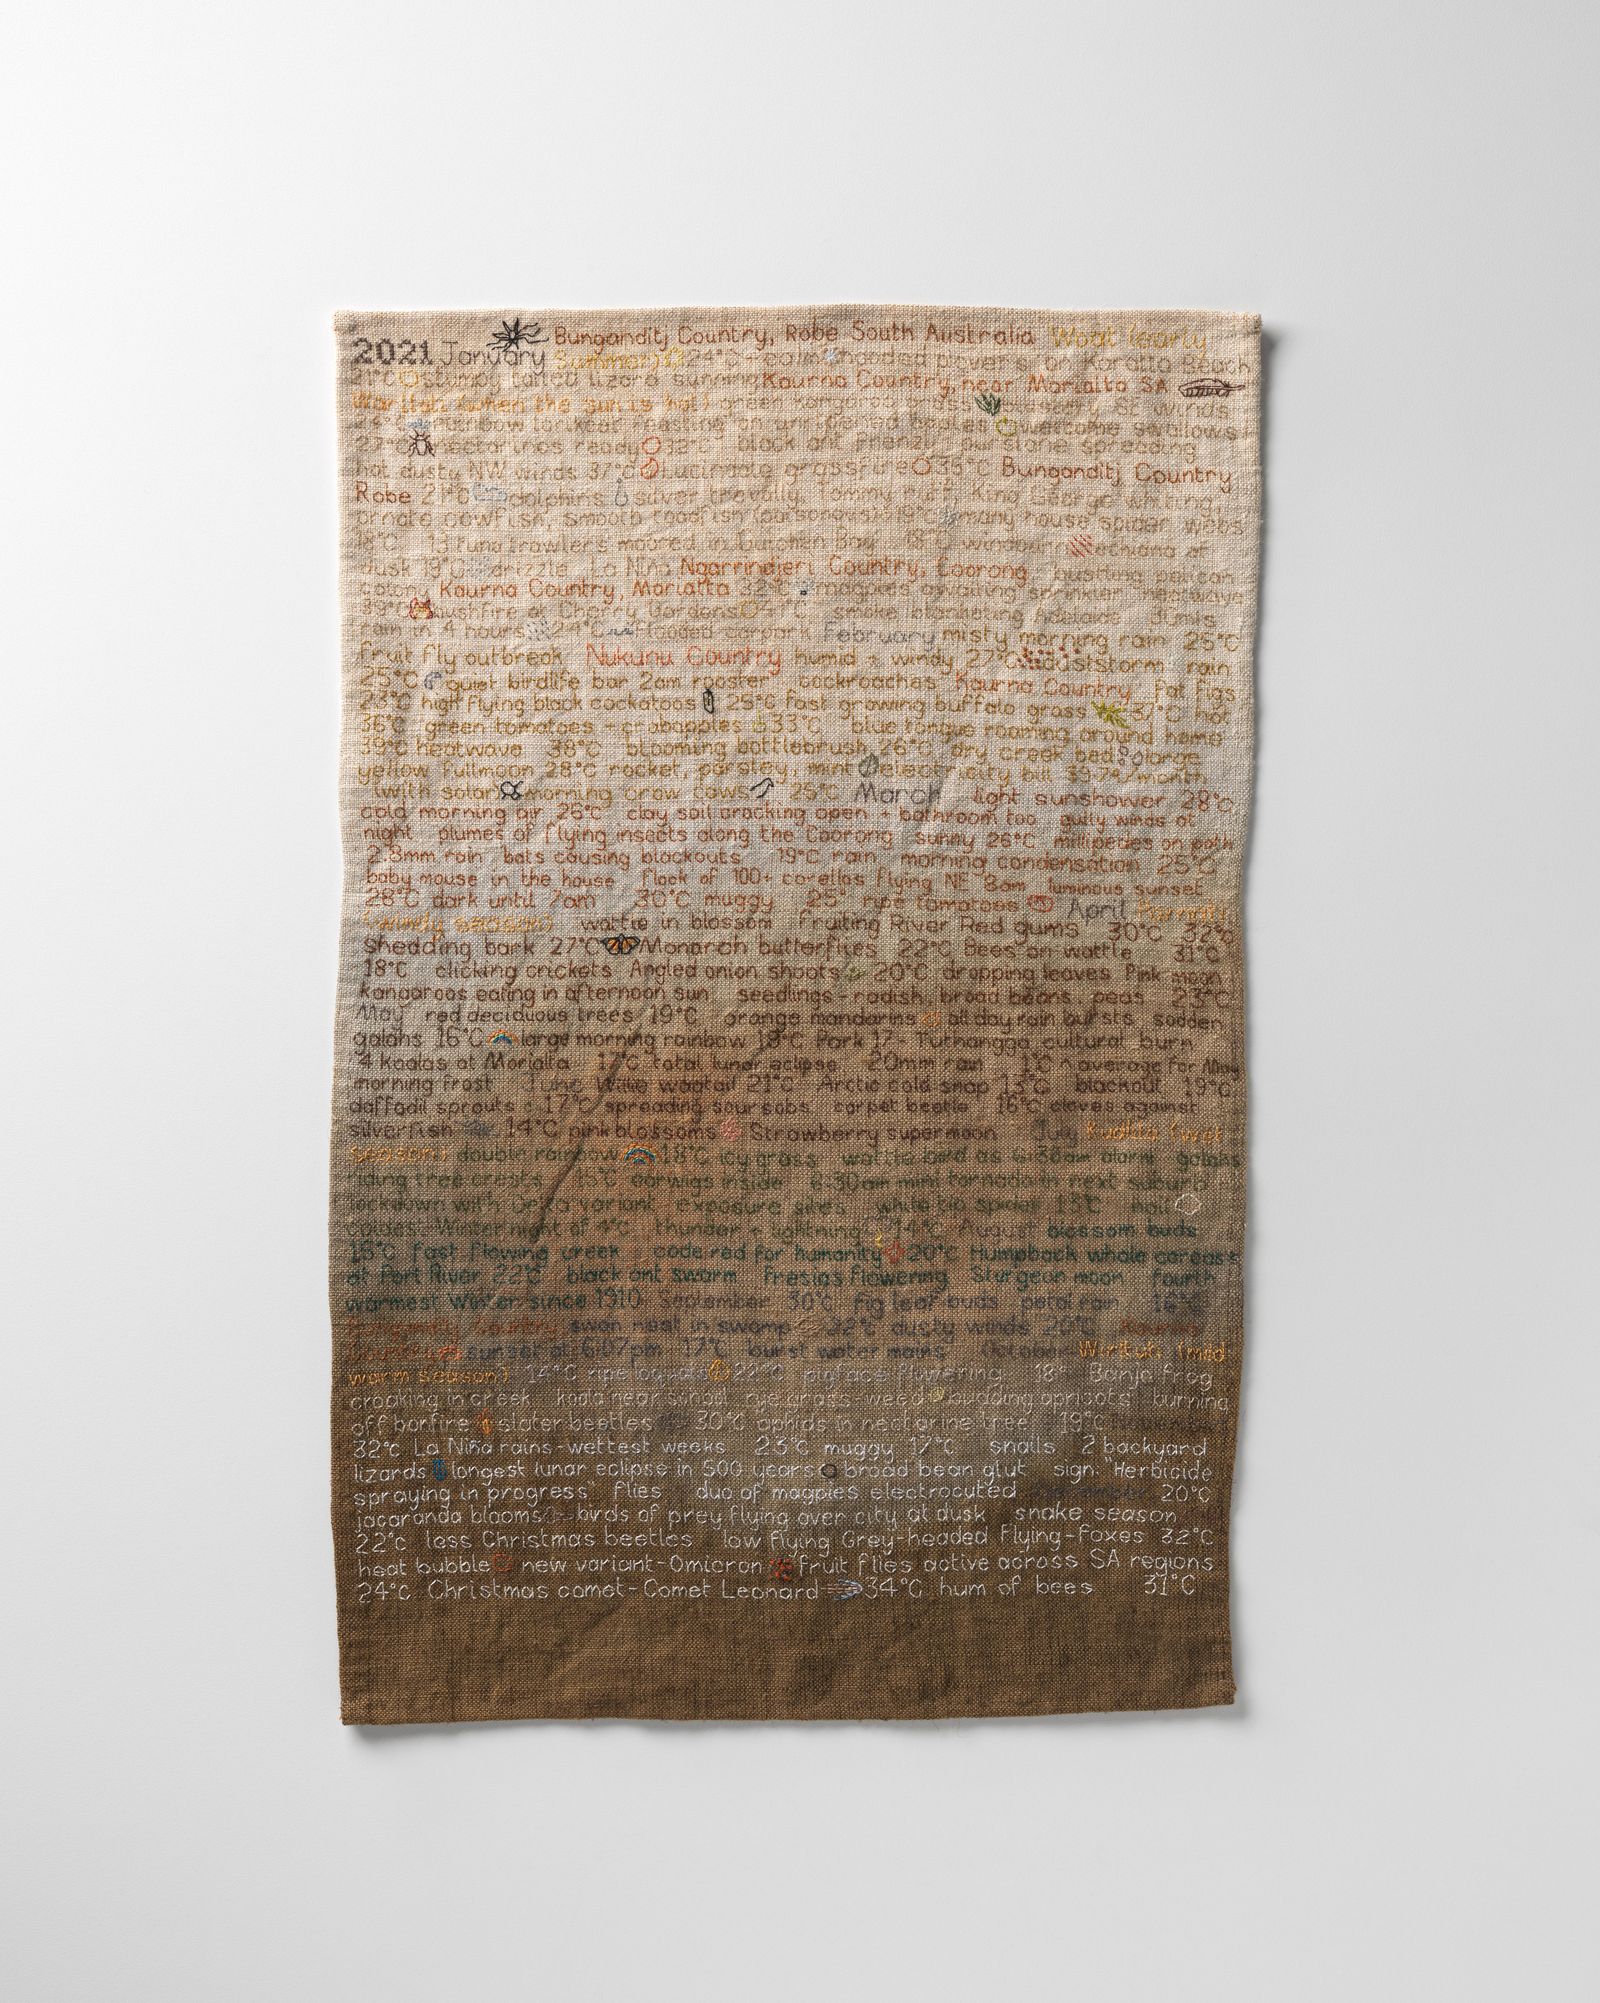 Bunganditj Country, Robe South Australia Woat (early
2021 January Summer) 24°C - calm hooded plovers on Karatta Beach
21°C stumpy tailed lizard sunning Kaurna Country, near Morialta SA
Warltati (when the sun is hot) green kangaroo grass blustery SE winds
24°C rainbow lorikeet feasting on unripened apples welcome swallows
27°C nectarines ready 32°C black ant frenzy purslane spreading
hot dusty NW winds 37°C Lucindale grassfire 35°C Bunganditj Country
Robe 21°C dolphins silver trevally, Tommy ruff, King George whiting,
ornate cowfish, smooth toadfish (poisonous) 19°C many house spider webs
18°C 13 tuna trawlers moored in Guichen Bay 18°C windburn echidna at
dusk 19°C drizzle La Niña Ngarrindjeri Country, Coorong bustling pelican
colony Kaurna Country, Morialta 32°C magpies awaiting sprinkler heatwave
39°C bushfire at Cherry Gardens 41°C smoke blanketing Adelaide
rain in 4 hours 24°C flooded carpark February misty morning rain 25°C
fruit fly outbreak Nukunu Country humid + windy 27°C duststorm rain
25°C quiet birdlife bar 2am rooster cockroaches Kaurna Country fat figs
23°C high flying black cockatoos 25°C fast growing buffalo grass 37°C hot
36°C green tomatoes - crabapples 33°C blue tongue roaming around home
39°C heatwave 38°C blooming bottlebrush 26°C dry creek bed large
yellow fullmoon 28°C rocket, parsley, mint electricity bill $9.74/month
(with solar) morning crow caws 25°C March light sunshower 28°C
cold morning air 26°C clay soil cracking open + bathroom too gully winds at
night plumes of flying insects along the Coorong sunny 26°C millipedes on path
2.8mm rain bats causing blackouts 19°C rain morning condensation 25°C
baby mouse in the house flock of 100+ corellas flying NE 8am luminous sunset
28°C dark until 7am 30°C muggy 25° ripe tomatoes April Parnati
(windy season) wattle in blossom fruiting River Red gums 30°C 32°C
Shedding bark 27°C Monarch butterflies 22°C Bees on wattle 31°C
18°C clicking crickets Angled onion shoots 20°C dropping leaves Pink moon
kangaroos eating in afternoon sun seedlings - radish, broad beans, peas 23°C
May red deciduous trees 19°C orange mandarins all day rain bursts sodden
galahs 16°C large morning rainbow 18°C Park 17 - Tuthangga cultural burn
4 koalas at Morialta 17°C total lunar eclipse 20mm rain 1°C average for May
morning frost June Willie wagtail 21°C Arctic cold snap 13°C blackout 19°C
daffodil sprouts 17°C spreading soursobs carpet beetle 16°C cloves against
silverfish 14°C pink blossoms Strawberry supermoon July Kudlila (wet
season) double rainbow 18°C icy grass wattle bird as 6:38am alarm galahs
riding tree crests 15°C earwigs inside 8:30am mini tornado in next suburb
lockdown with Delta variant exposure sites white tip spider 13°C hail
coldest Winter night of 4°C thunder + lightning 14°C August blossom buds
16°C fast flowing creek code red for humanity 20°C Humpback whale carcass
at Port River 22°C black ant swarm Fresias flowering Sturgeon moon fourth
warmest Winter since 1910 September 30°C fig leaf buds petal rain 16°C
Bunganditj Country swan nest in swamp 32°C dusty winds 20°C Kaurna
Country sunset at 6:07pm 17°C burst water mains October Wirltuti (mid
warm season) 14°C ripe loquats 22°C pigface flowering 18° Banjo frog
croaking in creek koala near small rye grass weed budding apricots burning
off bonfire slater beetles 30°C aphids in nectarine tree 19°C November
32°C La Niña rains - wettest weeks 23°C muggy 17°C snails 2 backyard
lizards longest lunar eclipse in 500 years broad bean glut sign: "Herbicide
spraying in progress" flies duo of magpies electrocuted December 20°C
jacaranda blooms birds of prey flying over city at dusk snake season
22°C less Christmas beetles low flying Grey-headed Flying-foxes 32°C
heat bubble new variant - Omicron fruit flies active across SA regions
24°C Christmas comet - Comet Leonard 34°C hum of bees 31°C